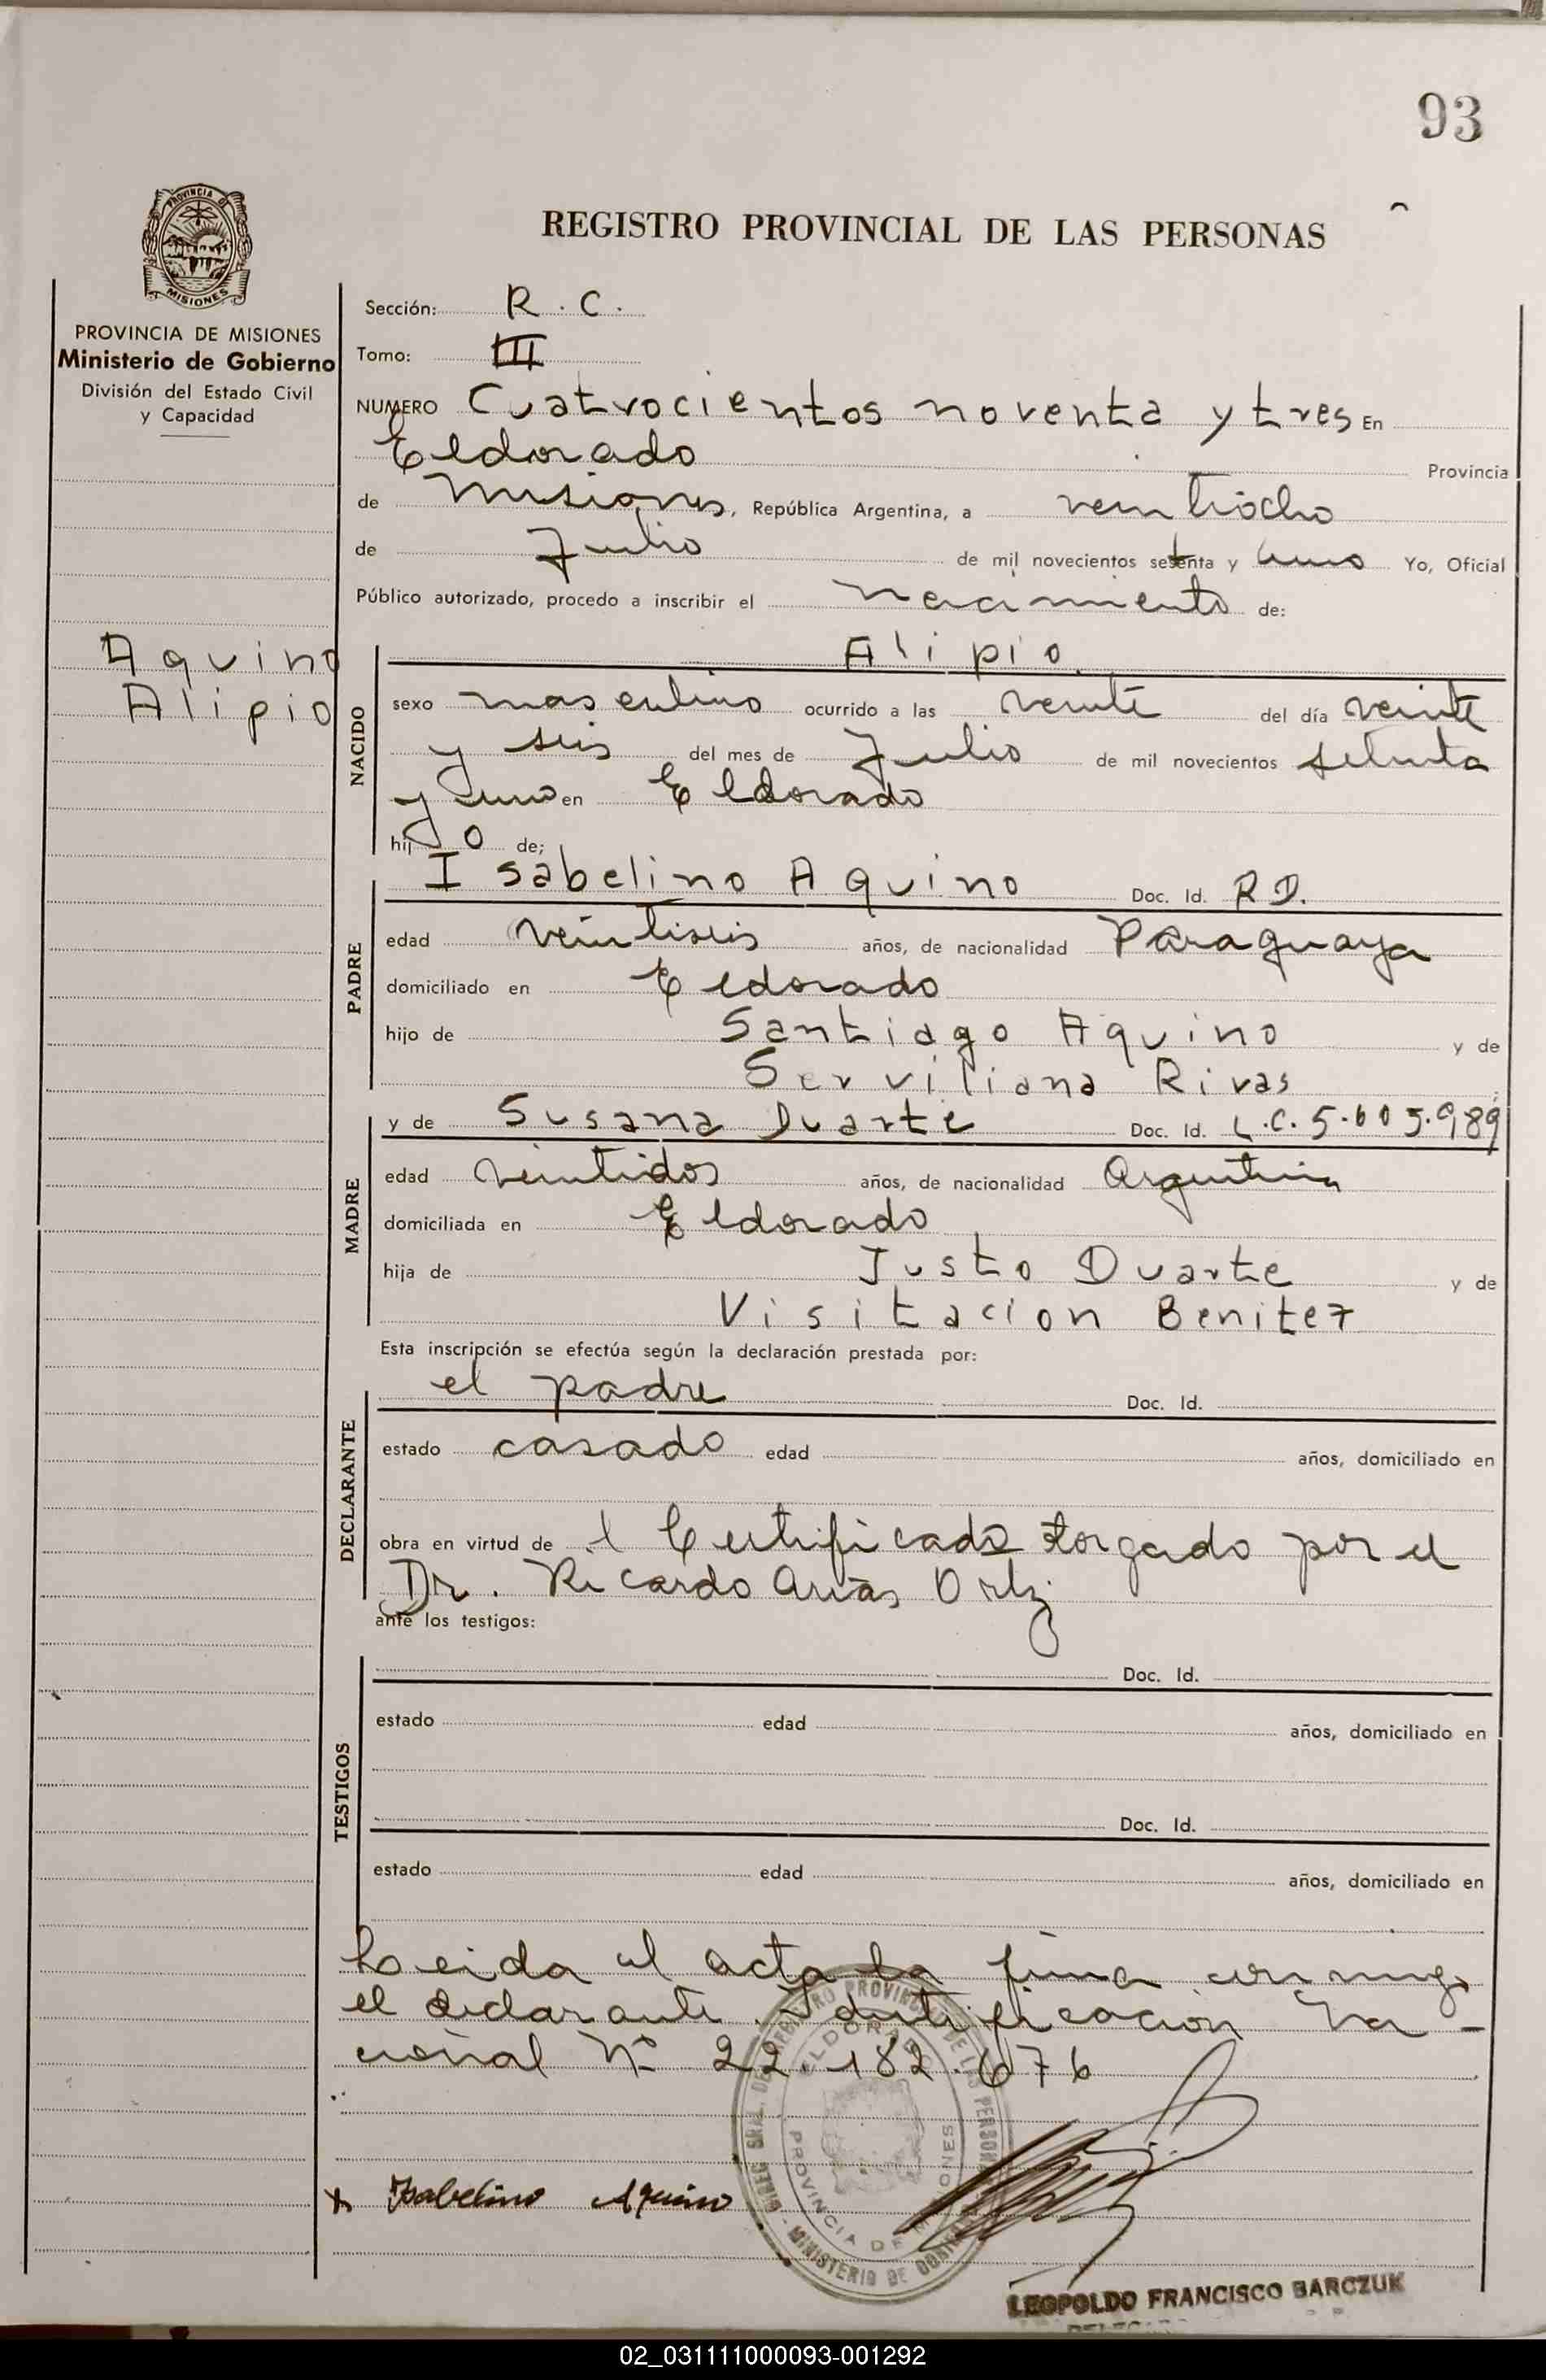 93
PROVINCIA DE
MISIONES
REGISTRO PROVINCIAL DE LAS PERSONAS
PROVINCIA DE MISIONES
Ministerio de Gobierno
División del Estado Civil
y Capacidad
Aquino
Alipio
Sección: R. C.
Tomo: III
NUMERO Cuatrocientos noventa y tres En
Eldorado Provincia
de Misiones, República Argentina, a veintiocho
de Julio de mil novecientos setenta y uno Yo, Oficial
Público autorizado, procedo a inscribir el nacimiento de:
NACIDO
Alipio
sexo masculino ocurrido a las veinte del día veinte
y seis del mes de Julio de mil novecientos setenta
y uno en Eldorado
hijo de;
PADRE
Isabelino Aquino Doc. Id. R D.
edad veintiseis años, de nacionalidad Paraguaya
domiciliado en Eldorado
hijo de Santiago Aquino y de
Serviliana Rivas
MADRE
y de Susana Duarte Doc. Id. L.C. 5.605.989
edad veintidos años, de nacionalidad Argentina
domiciliada en Eldorado
hija de Justo Duarte y de
Visitacion Benitez
Esta inscripción se efectúa según la declaración prestada por:
DECLARANTE
el padre Doc. Id.
estado casado edad años, domiciliado en
obra en virtud de l Certificado torgado por el
Dr. Ricardo Arias Ortiz
ante los testigos:
TESTIGOS
Doc. Id.
estado edad años, domiciliado en
Doc. Id.
estado edad años, domiciliado en
Leida el acta la firma conmigo
el declarante. Identificación Na-
cional Nº 22.182.676
DIREC. GRAL. DEL REGISTRO PROVINCIAL DE LAS PERSONAS - MINISTERIO DE GOBIERNO
ELDORADO
PROVINCIA DE MISIONES
x Isabelino Aquino
LEOPOLDO FRANCISCO BARCZUK
02_031111000093-001292